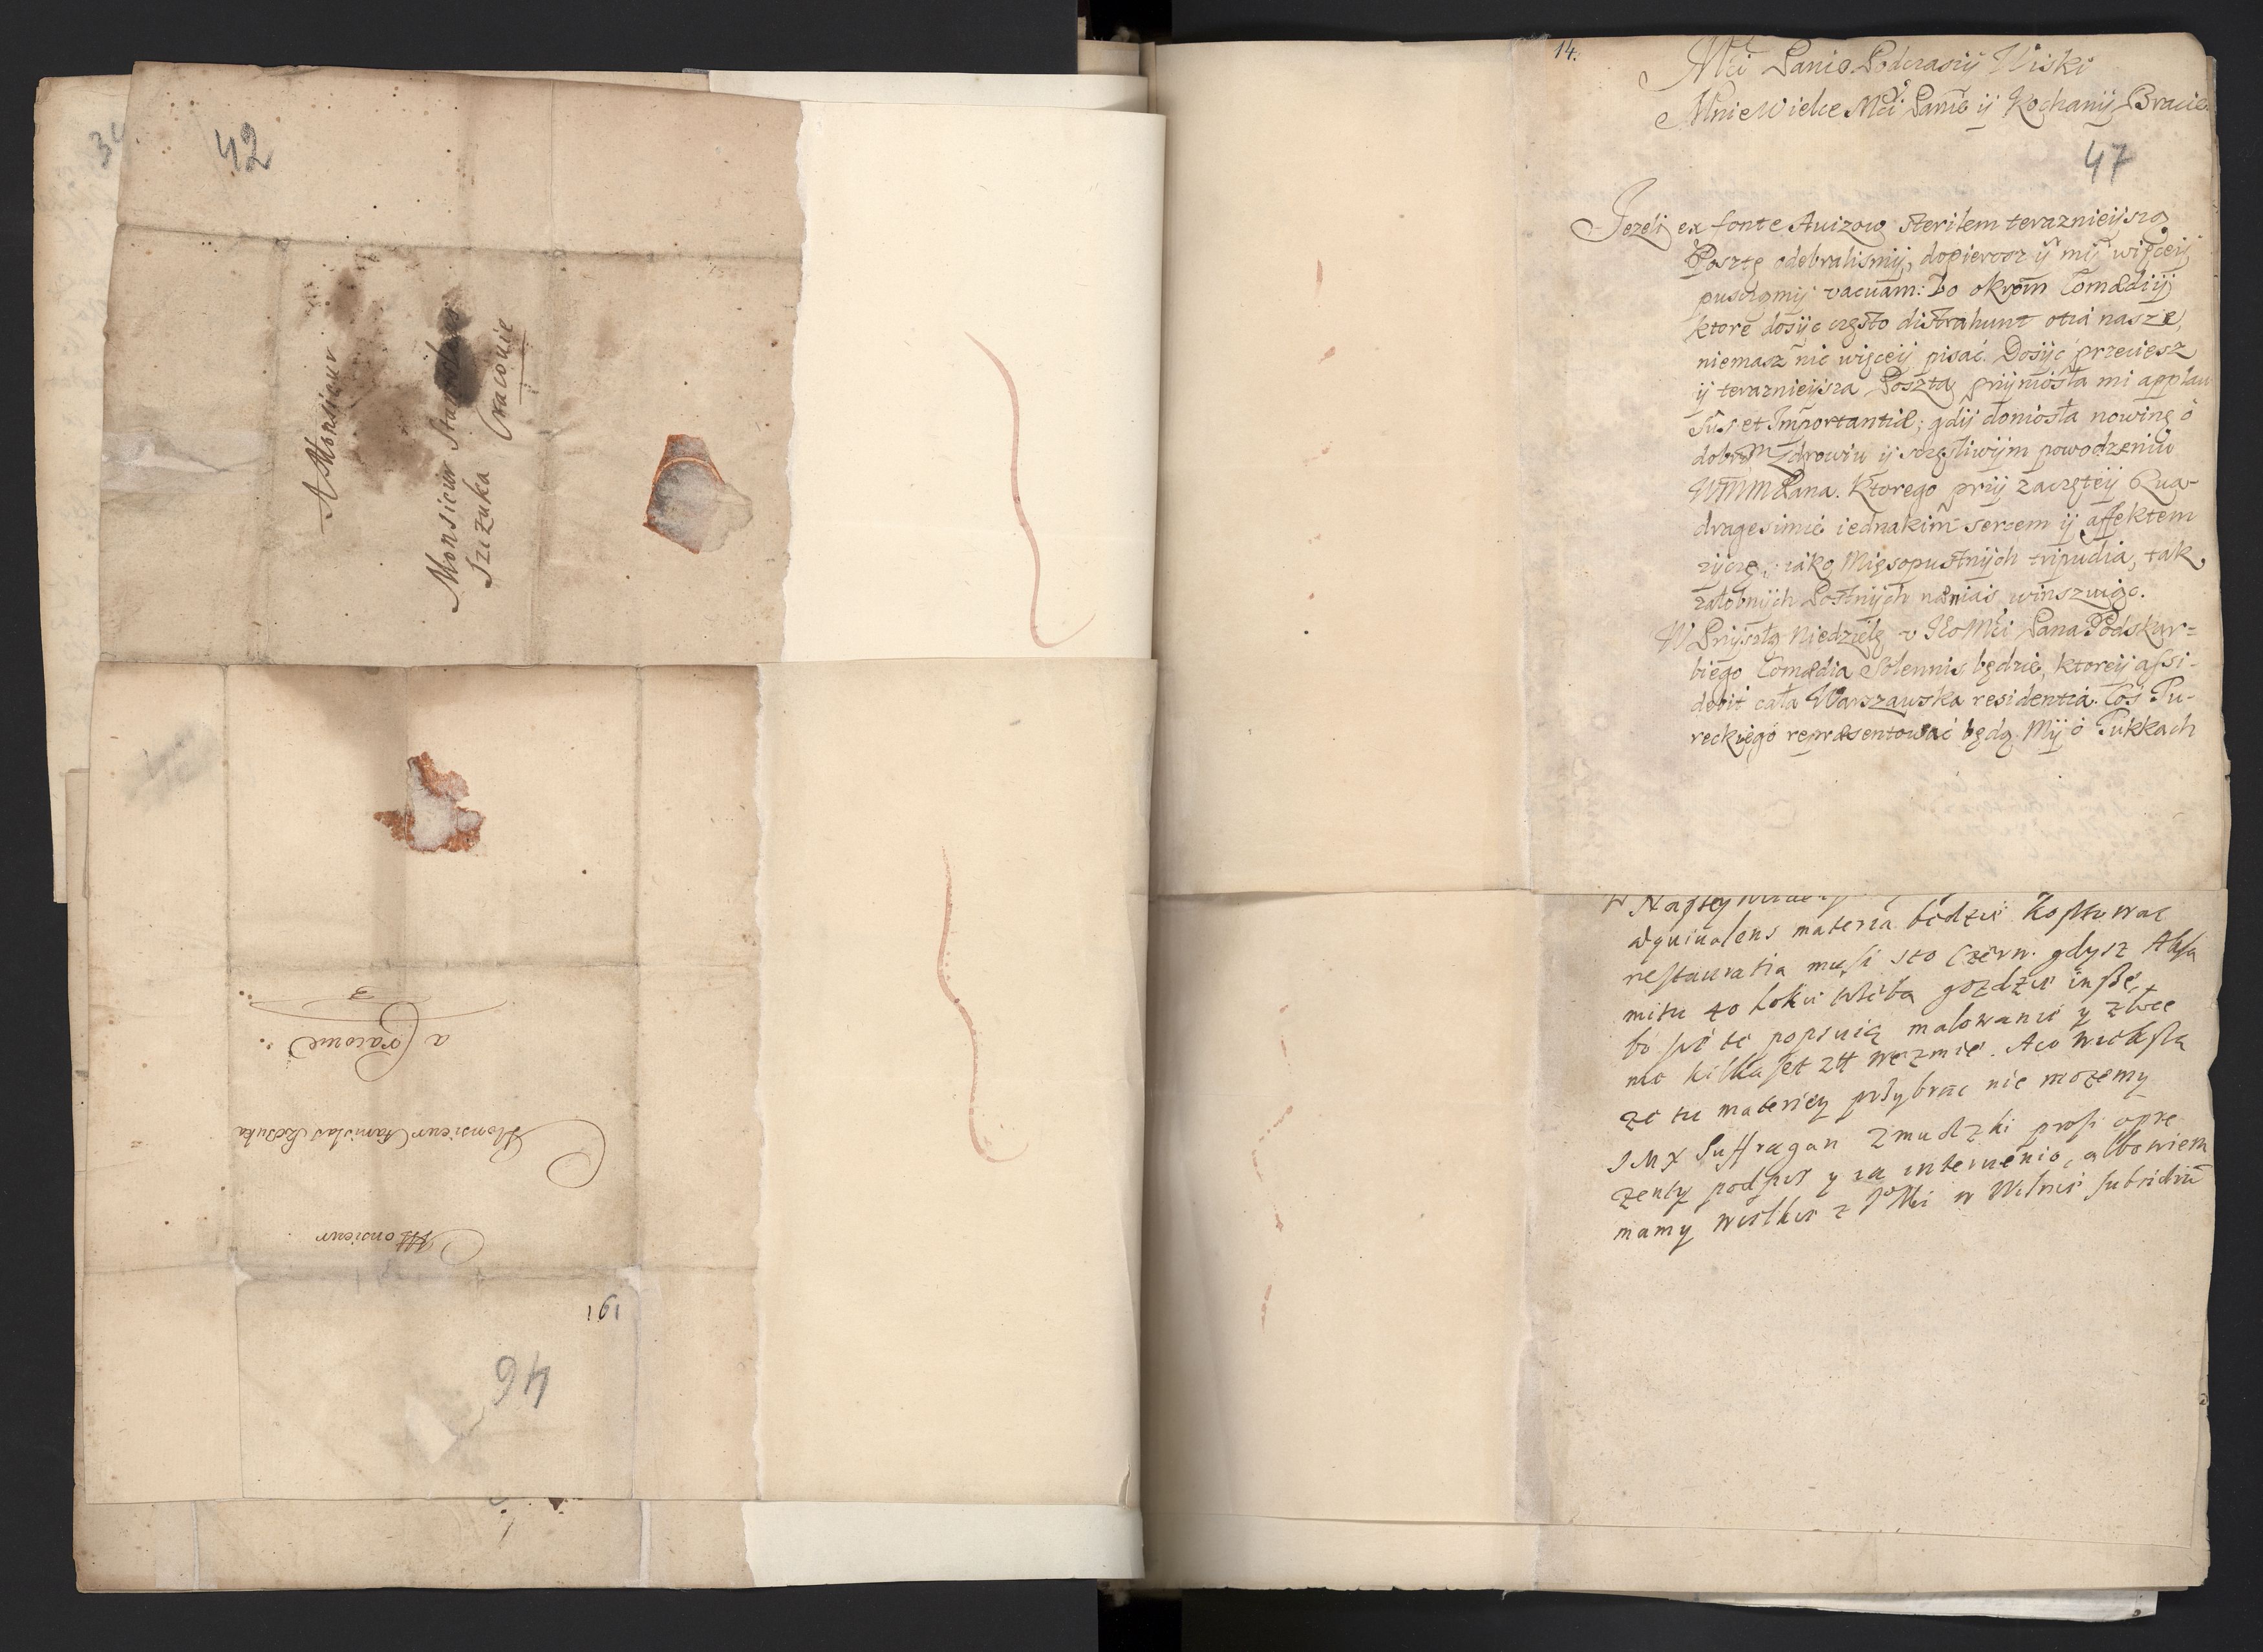 34.
42
A Monsieur
Monsieur
Szczuka Cracovie
a Cracovie
Monsieur Stanislas Szczuka
Monsieur
191
46
14.
Mći Panie Podczaszy Wiski
Mnie Wielce Mći Panie ij Kochanij Bracie
47
Jezeli ex fonte Auizow sterilem teraznieijszą
Posztę odebralismij, dopierosz ij mij więceij
pusczemij vacuam: bo okrom Comædiij
ktore dosijc często distrahunt otia nasze,
niemasz nic więceij pisać. Dosijć przeciesz
ij teraznieijsza Poszta prijniosła mi applau
sus et Importantiæ; gdij doniosła nowinę o
dobrym Zdrowiu ij sczęsliwijm powodzeniu
WMMPana. Ktorego przij zaczęteij Qua-
dragesimie iednakim sercem ij affektem
zijczę, iako Mięsopustnijch tripudia, tak
załobnijch Postnijch nænias winszuięc.
W Prijszłą Niedzielę v JEoMći Pana Podskar=
biego Comædia Solennis będzie, ktoreij assi-
debit cała Warszawska residentia. Cos Tu-
reckiego repræsentować będą Mij o Tukkach
æquiualens materia będzie kosztowac
restauratia musi sto Czerw. gdysz Aksa
mitu 40 łokci trzeba gozdzie insze,
bo się te popsuią malowanie y złoce
nie kilkaset zƚƚ wezmie. Aco wieksza
ze tu materiey przybrac nie mozemy
JMX Suffragan Zmudzki prosi opre
zenty podpis y za interuenio, albowiem
mamy wielkie z JoMci w Wilnie subsidiū